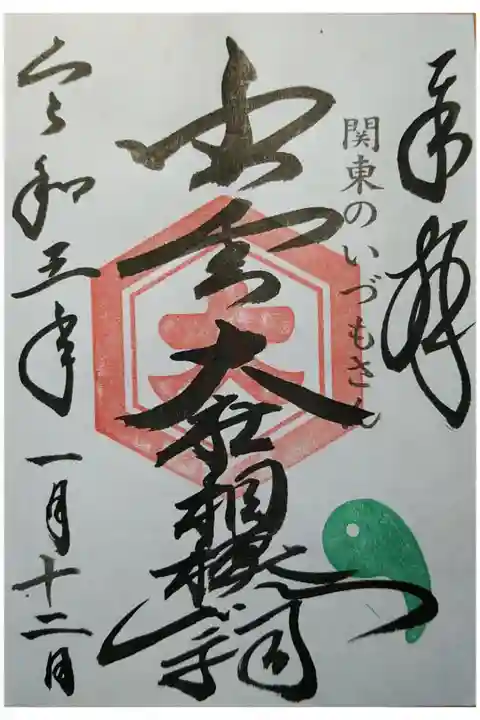 奉拝
関東のいづもさん
出雲大社相模分祠
大
令和三年一月十二日